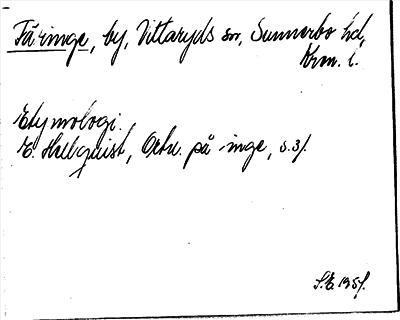 Färinge, by, Vittaryds sn, Sunnerbo hd,
Kron. l.
Etymologi.
E. Hellquist, Ortn. på inge, s.31.
S.E. 1951.